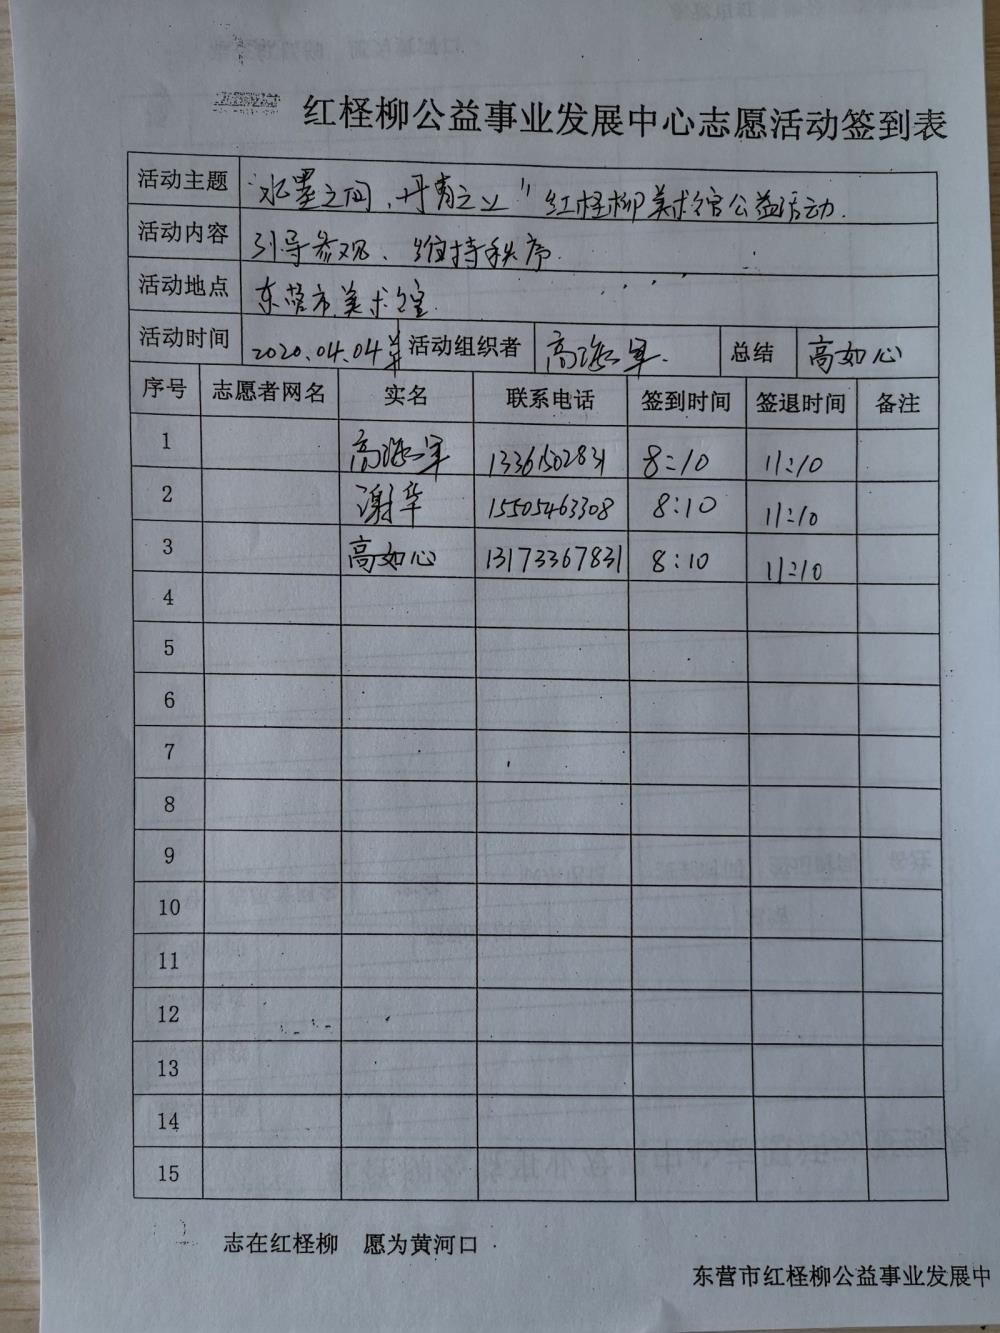 红柽柳公益事业发展中心志愿活动签到表
活动主题 “水墨之间，丹青之义”红柽柳美术馆公益活动.
活动内容 引导参观、维持秩序.
活动地点 东营市美术馆.
活动时间 2020.04.04 活动组织者 高海军. 总结 高如心
序号 志愿者网名 实名 联系电话 签到时间 签退时间 备注
1 高海军 13361502831 8:10 11:10
2 谢华 15505463308 8:10 11:10
3 高如心 13173367831 8:10 11:10
4
5
6
7
8
9
10
11
12
13
14
15
志在红柽柳 愿为黄河口
东营市红柽柳公益事业发展中